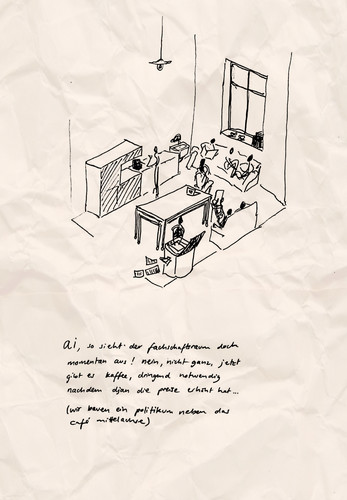 ai, so sieht der fachschaftsraum doch
momentan aus! nein, nicht ganz, jetzt
gibt es kaffee, dringend notwendig
nachdem djan die preise erhöht hat...
(wir bauen ein politikum neben das
café mittelachse)